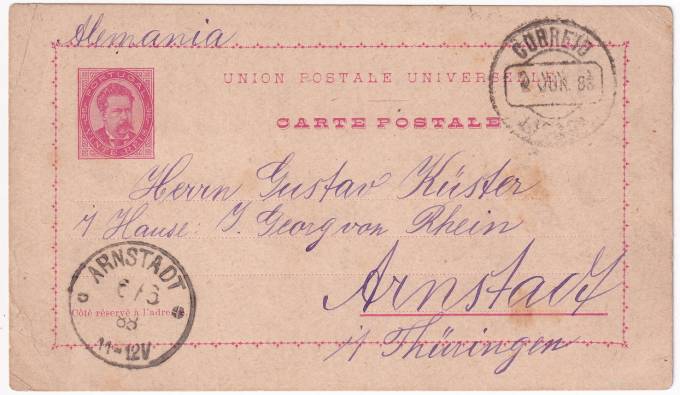 Alemania
UNION POSTALE UNIVERSELLE
CARTE POSTALE
PORTUGAL
CORREIO
2 JUN. 88
Herrn Gustav Küster
i/ Hause: J. Georg von Rhein
Arnstadt
i/ Thüringen
ARNSTADT
6/6
88
11-12V
Côté réservé à l'adre